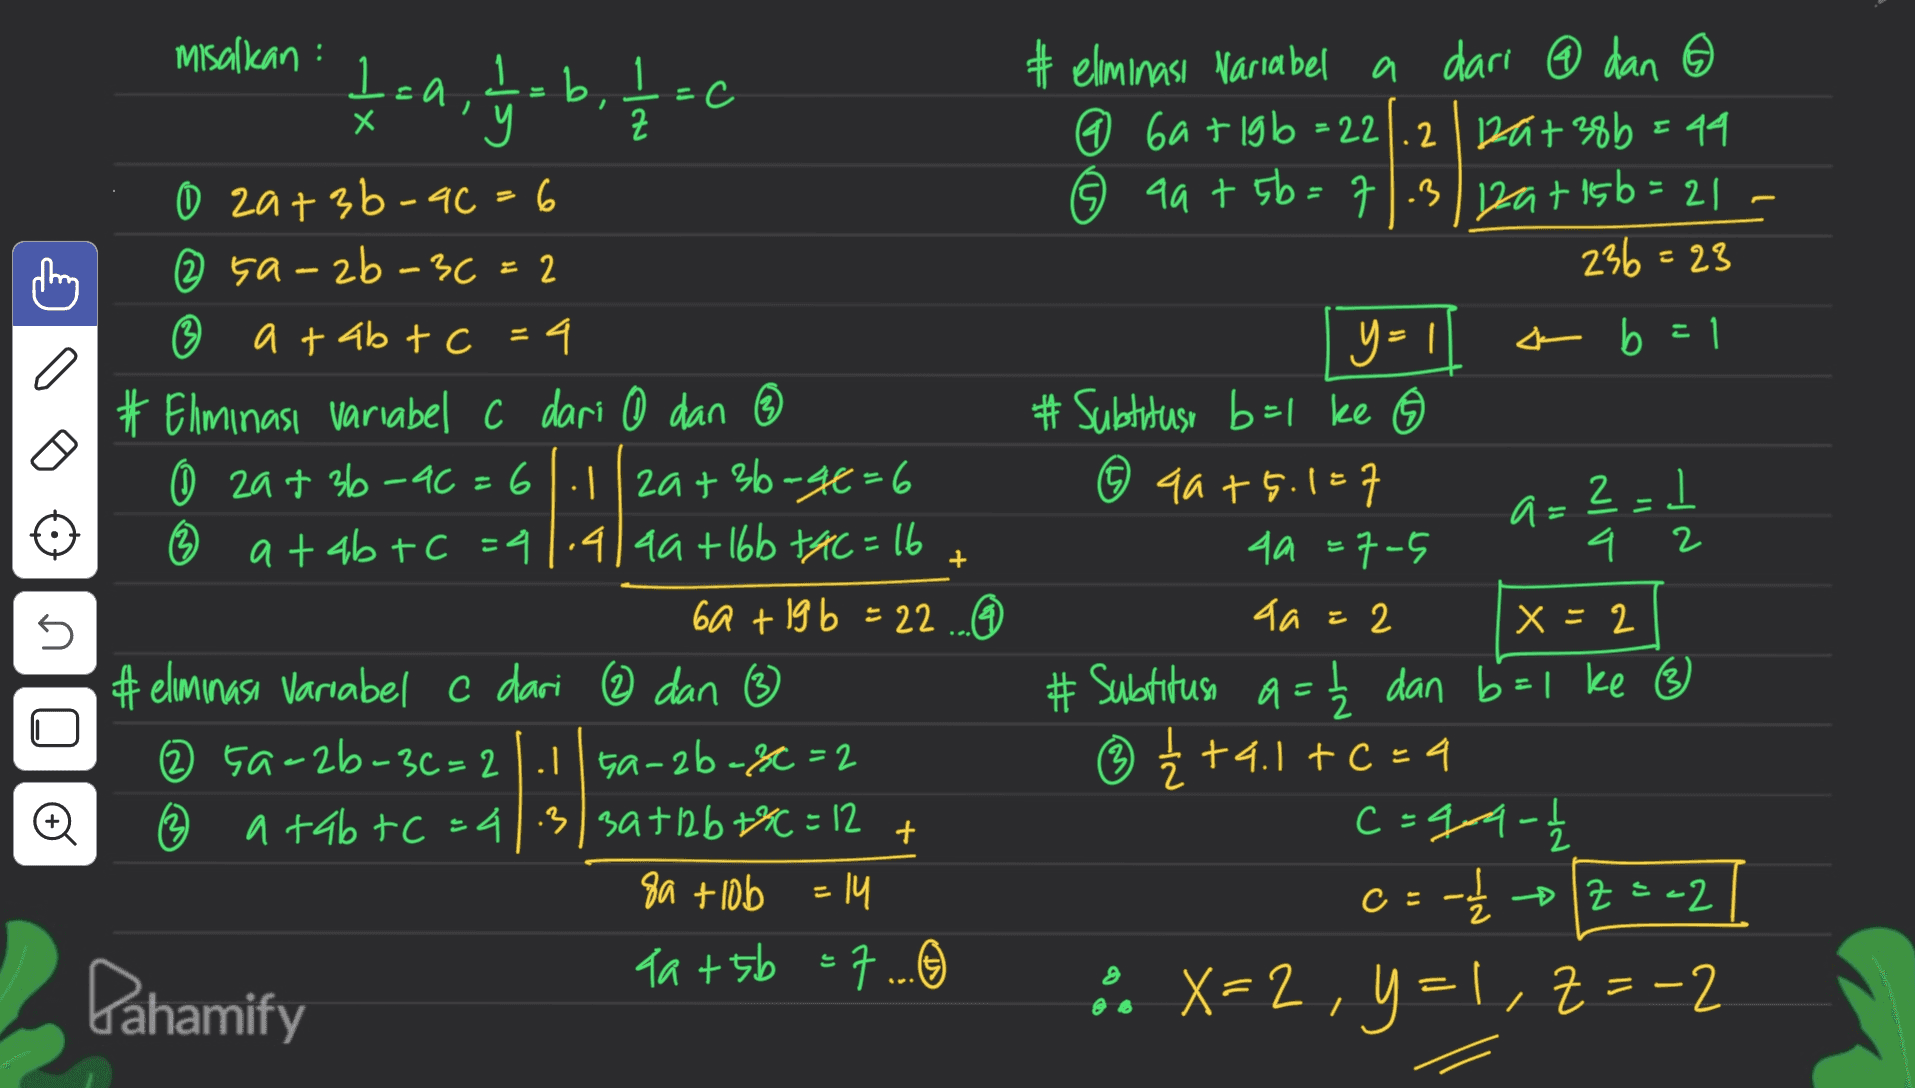 misalkan : 1/x = a, 1/y = b, 1/z = c
① 2a + 3b - 4c = 6
② 5a - 2b - 3c = 2
③ a + 4b + c = 4
# Eliminasi variabel c dari ① dan ③
① 2a + 3b - 4c = 6 | .1 | 2a + 3b - 4c = 6
③ a + 4b + c = 4 | .4 | 4a + 16b + 4c = 16 +
6a + 19b = 22 ...④
# eliminasi variabel c dari ② dan ③
② 5a - 2b - 3c = 2 | .1 | 5a - 2b - 3c = 2
③ a + 4b + c = 4 | .3 | 3a + 12b + 3c = 12 +
8a + 10b = 14
4a + 5b = 7 ...⑤
# eliminasi variabel a dari ④ dan ⑤
④ 6a + 19b = 22 | .2 | 12a + 38b = 44
⑤ 4a + 5b = 7 | .3 | 12a + 15b = 21 -
23b = 23
y = 1 ← b = 1
# Subtitusi b = 1 ke ⑤
⑤ 4a + 5.1 = 7
4a = 7 - 5
4a = 2
a = 2/4 = 1/2
x = 2
# Subtitusi a = 1/2 dan b = 1 ke ③
③ 1/2 + 4.1 + c = 4
c = 4 - 4 - 1/2
c = -1/2 → z = -2
∴ x = 2, y = 1, z = -2
Pahamify